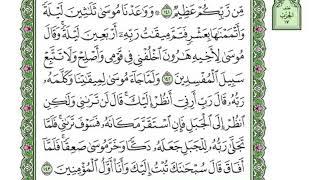 مِّن رَّبِّكُمْ عَظِيمٌ ١٤١ وَوَٰعَدْنَا مُوسَىٰ ثَلَٰثِينَ لَيْلَةً
وَأَتْمَمْنَٰهَا بِعَشْرٍ فَتَمَّ مِيقَٰتُ رَبِّهِۦٓ أَرْبَعِينَ لَيْلَةً وَقَالَ
مُوسَىٰ لِأَخِيهِ هَٰرُونَ ٱخْلُفْنِى فِى قَوْمِى وَأَصْلِحْ وَلَا تَتَّبِعْ
سَبِيلَ ٱلْمُفْسِدِينَ ١٤٢ وَلَمَّا جَآءَ مُوسَىٰ لِمِيقَٰتِنَا وَكَلَّمَهُۥ
رَبُّهُۥ قَالَ رَبِّ أَرِنِىٓ أَنظُرْ إِلَيْكَ قَالَ لَن تَرَىٰنِى وَلَٰكِنِ
ٱنظُرْ إِلَى ٱلْجَبَلِ فَإِنِ ٱسْتَقَرَّ مَكَانَهُۥ فَسَوْفَ تَرَىٰنِى فَلَمَّا
تَجَلَّىٰ رَبُّهُۥ لِلْجَبَلِ جَعَلَهُۥ دَكًّا وَخَرَّ مُوسَىٰ صَعِقًا فَلَمَّآ
أَفَاقَ قَالَ سُبْحَٰنَكَ تُبْتُ إِلَيْكَ وَأَنَا۠ أَوَّلُ ٱلْمُؤْمِنِينَ ١٤٣